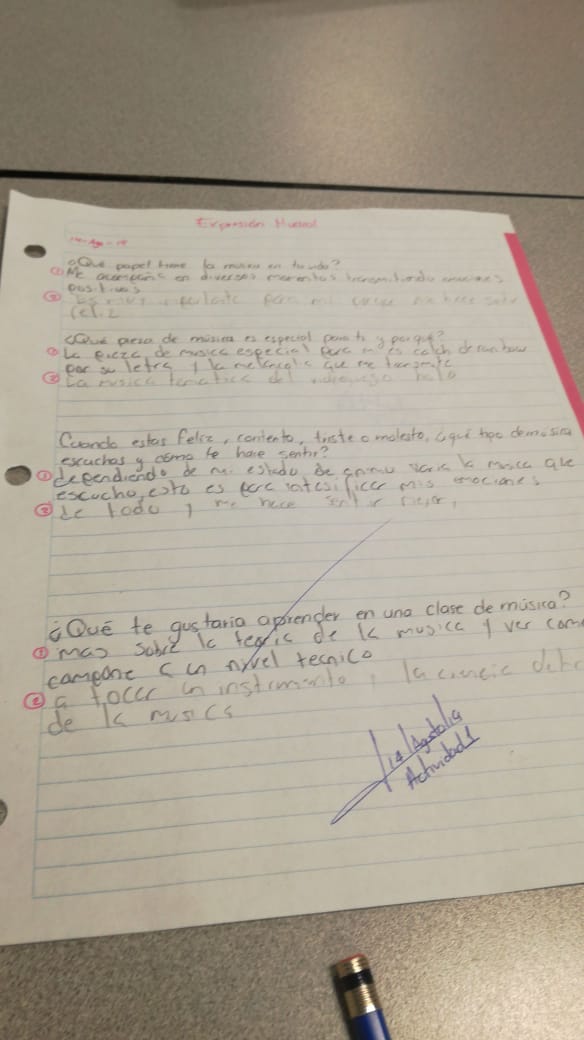 Expresión Musical
14-Ag-19
¿Qué papel tiene la musica en tu vida?
① Me acompaña en diversos momentos transmitiendo emociones
positivas
② Es muy importante para mi me hace
feliz
¿Qué pieza de música es especial para ti y porqué?
① La pieza de musica especial para mi es catch de rainbow
por su letra y la melancolia que me transmite
② La musica tematica del videojuego halo
Cuando estas feliz, contento, triste o molesto, ¿qué tipo de música
escuchas y cómo te hace sentir?
① dependiendo de mi estado de animo varia la musica que
escucho, esto es para intesificar mis emociones
② de todo y me hace sentir mejor,
¿Qué te gustaria aprender en una clase de música?
① mas sobre la teoria de la musica y ver como
compone a un nivel tecnico
② a tocar un instrumento, la ciencia detra
de la musica
14/Agosto/19
Actividad 1